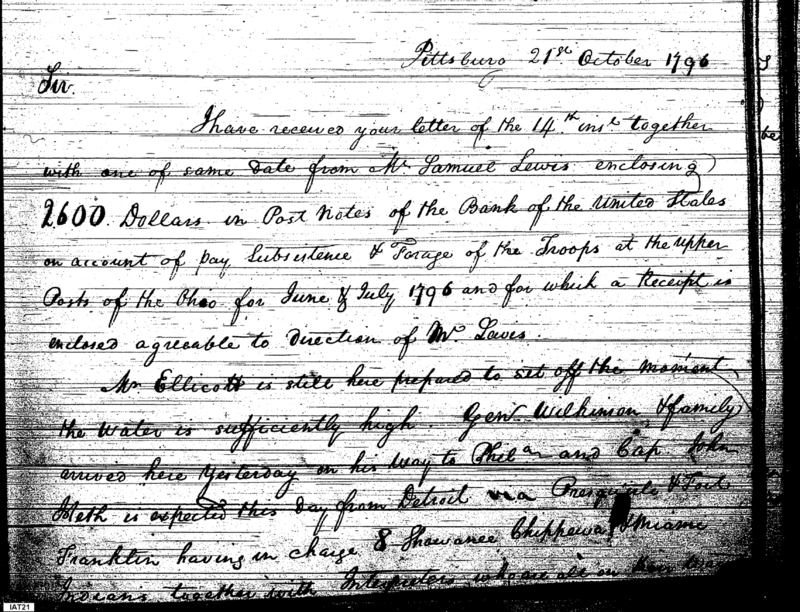 Pittsburg 21st October 1796
Sir.
I have received your letter of the 14th inst together
with one of same date from Mr Samuel Lewis enclosing
2600. Dollars in Post Notes of the Bank of the United States
on account of pay Subsistence & Forage of the Troops at the upper
Posts of the Ohio for June & July 1796 and for which a Receipt is
enclosed agreeable to Direction of Mr Lewis.
Mr Ellicott is still here prepared to set off the moment
the water is sufficiently high. Genl Wilkinson & family
arrived here Yesterday on his way to Phila and Cap John
Heth is expected this Day from Detroit via Presquile & Fort
Franklin having in charge 8 Shawanee Chippewa & Miami
Indians together with Interpreters who are all on their Way
S
be
IAT21